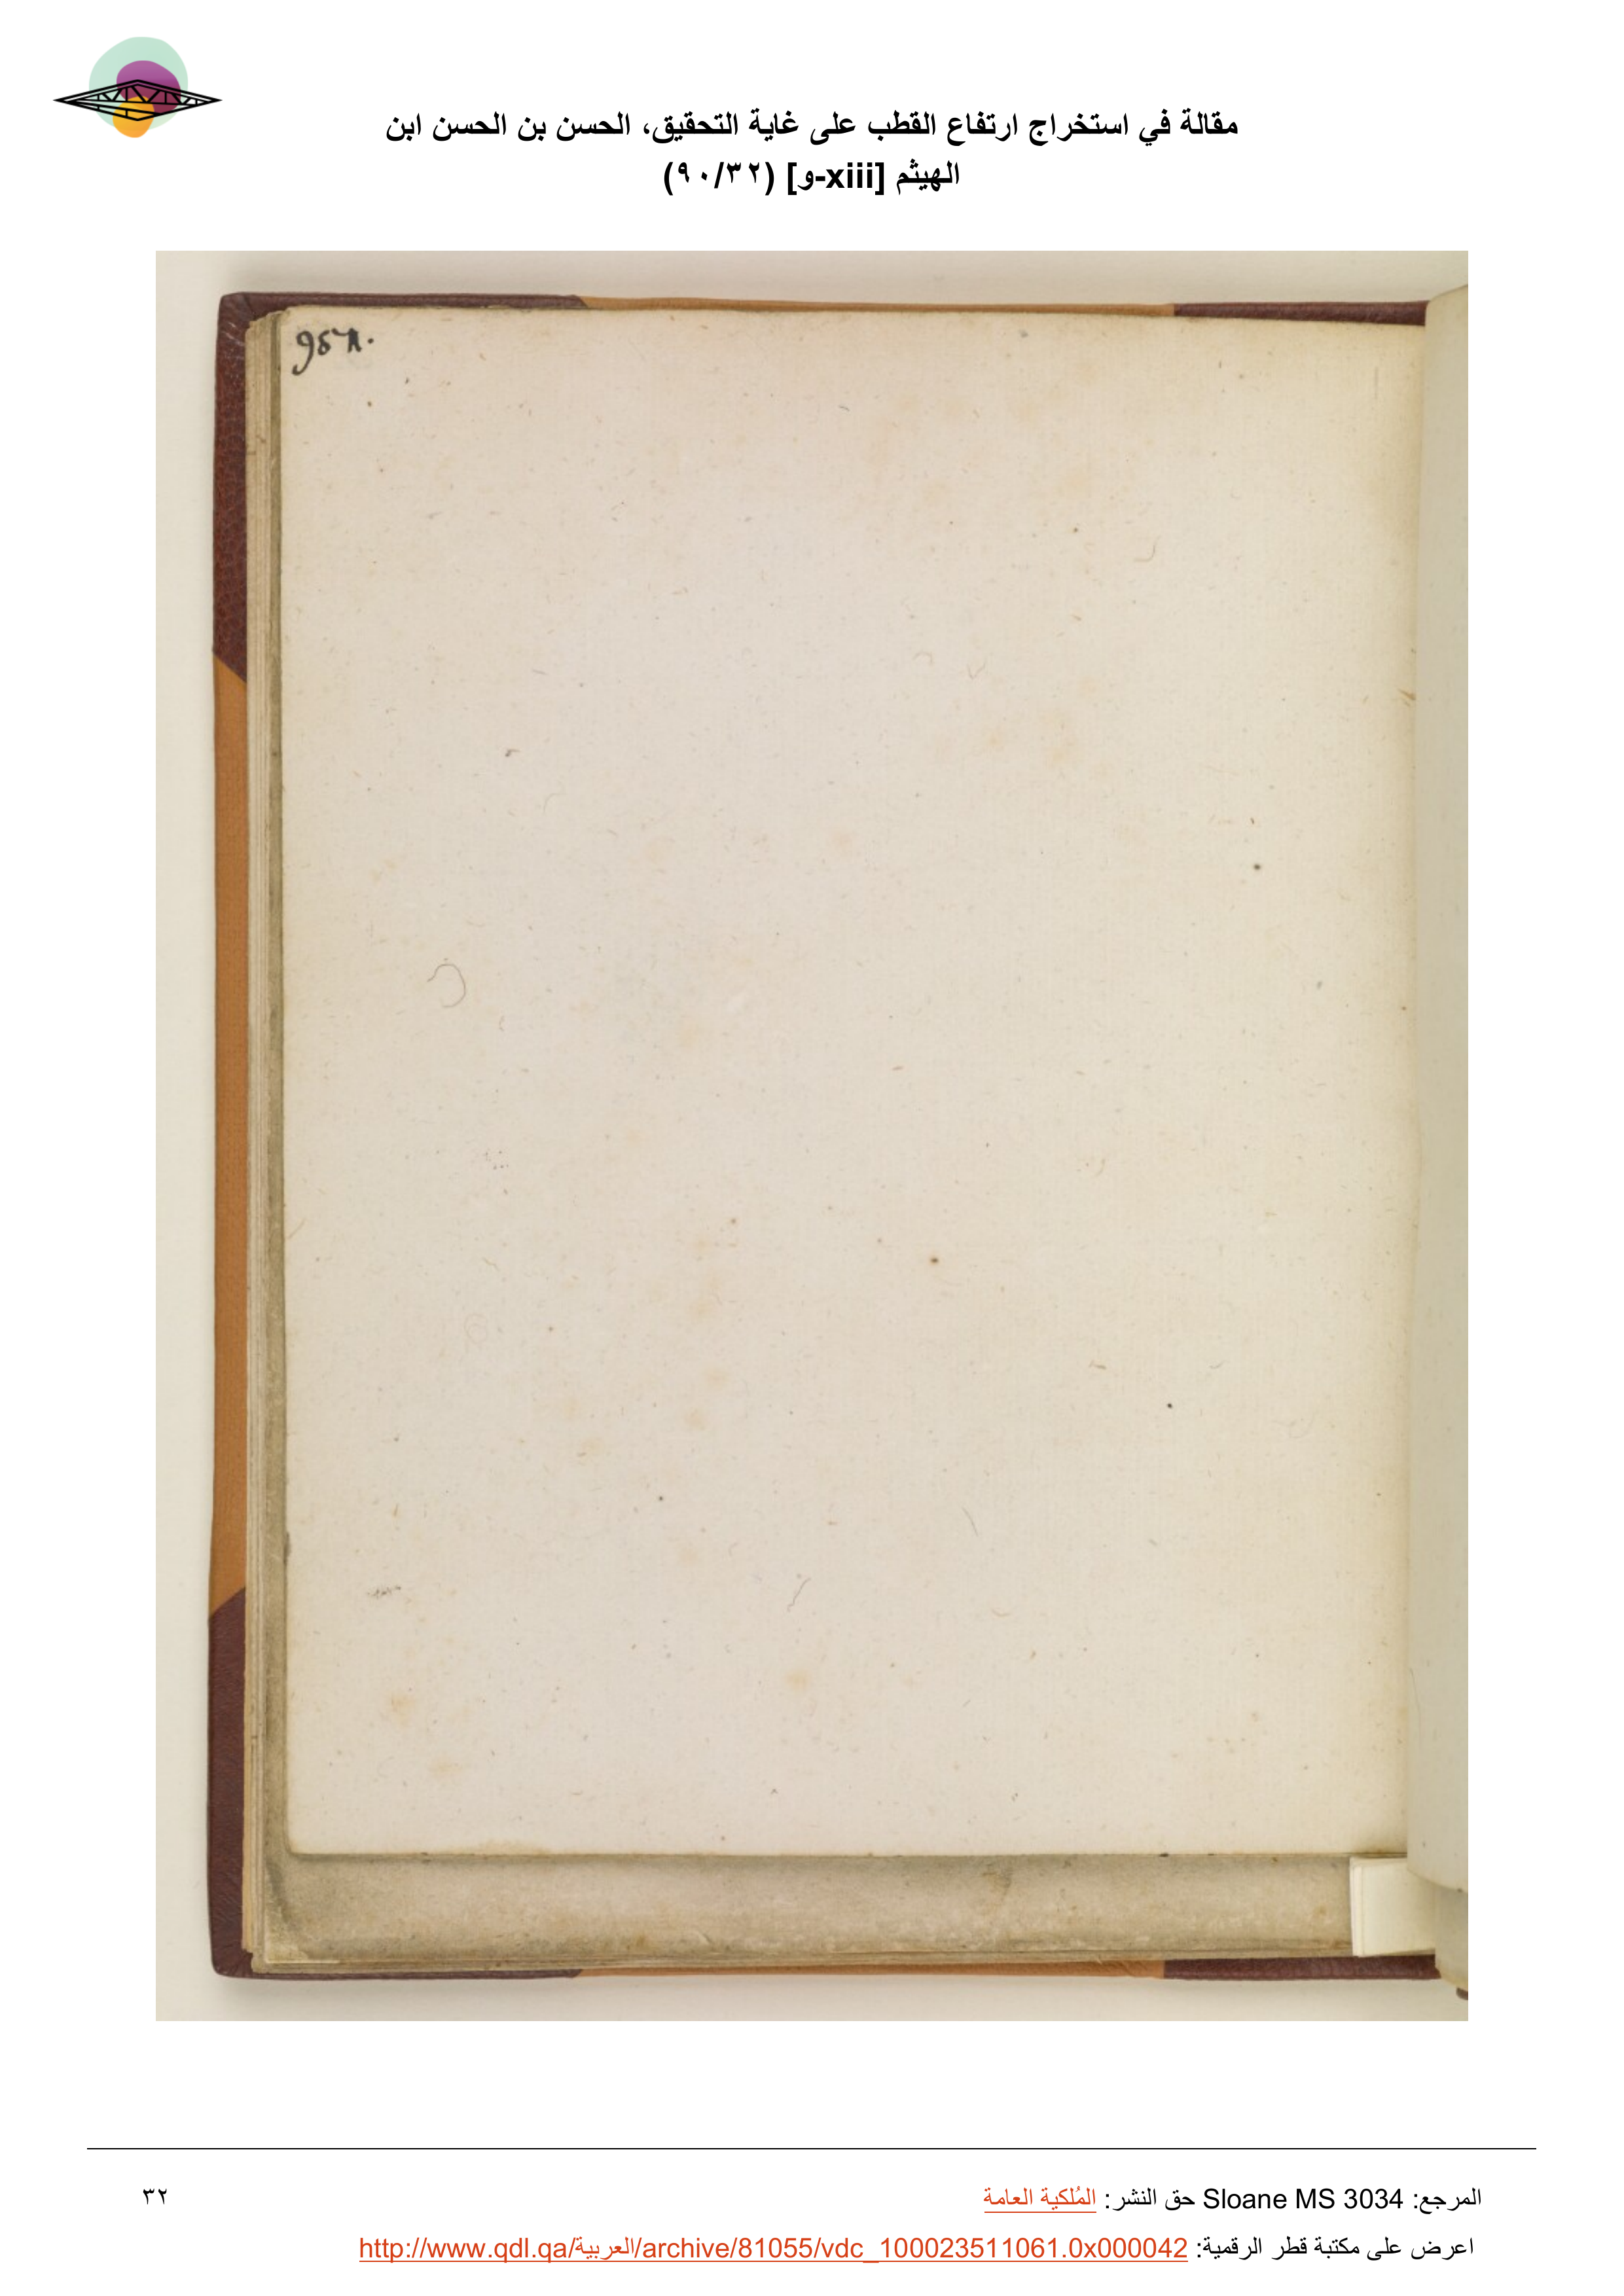 مقالة في استخراج ارتفاع القطب على غاية التحقيق، الحسن بن الحسن ابن
الهيثم [xiii-و] (٩٠/٣٢)
المرجع: Sloane MS 3034 حق النشر: المُلكية العامة
٣٢
اعرض على مكتبة قطر الرقمية: http://www.qdl.qa/العربية/archive/81055/vdc_100023511061.0x000042